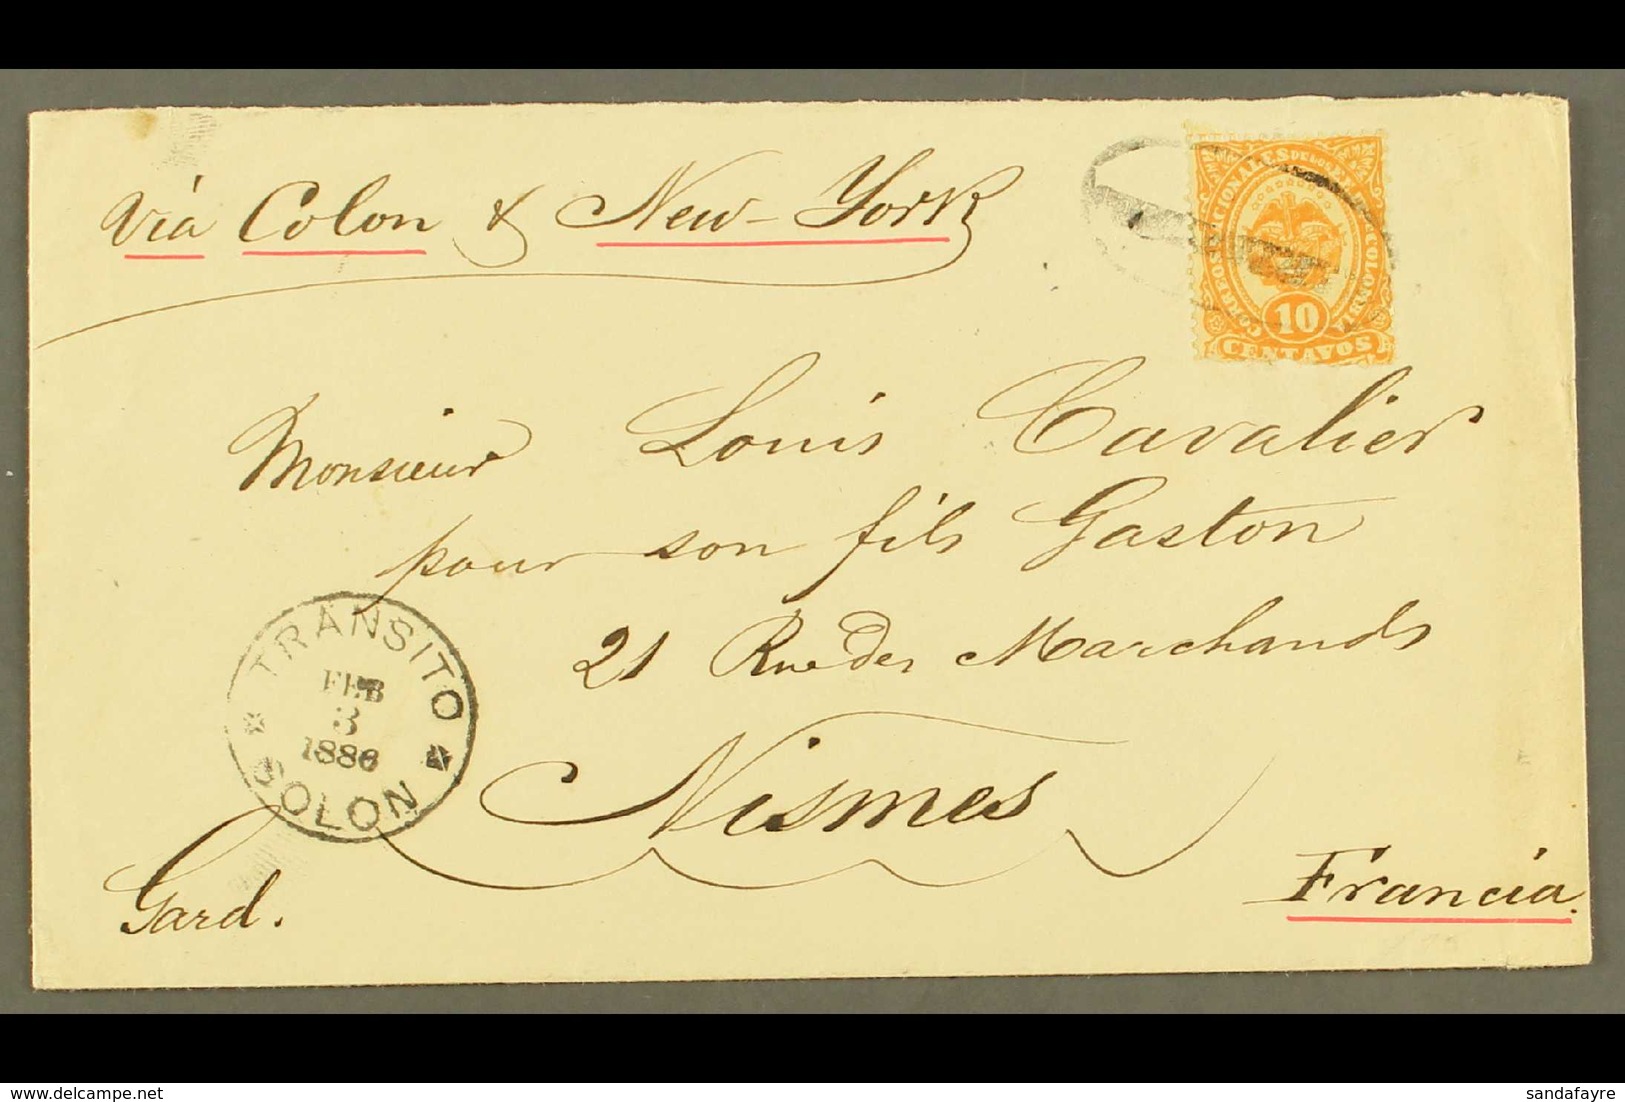 via Colon & New-York
CORREOS NACIONALES DE LOS COLOMBIA
10
CENTAVOS
Monsieur Louis Cavalier
pour son fils Gaston
21 Rue des Marchands
TRANSITO
FEB
3
1886
COLON
Nismes
Gard.
Francia.
© delcampe.net
sandafayre